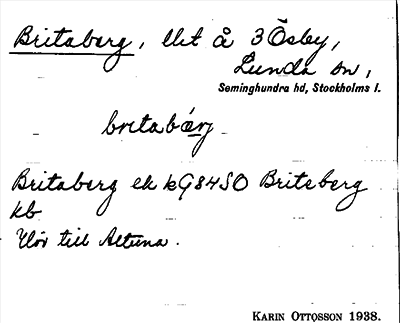 Britaberg, llet å 3 Ösby,
Lunda sn,
Seminghundra hd, Stockholms l.
britabærj
Britaberg ek kG84SO Briteberg
kb
Hör till Altuna.
KARIN OTTOSSON 1938.